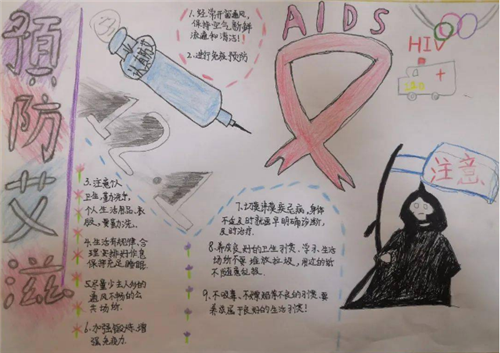 预防艾滋
1.经常开窗通风,
保持空气新鲜
流通和清洁!!
2.进行免疫预防
AIDS
HIV
注意
12.1
3.注意个人
卫生,勤洗手,
个人生活用品、衣
服,要勤洗。
4.生活有规律,合
理安排好作息
保持充足睡眠.
5.尽量少去人多的
通风不畅的公
共场所.
6.加强锻炼,增
强免疫力.
身体
不适及时就医早明确诊断,
及时治疗.
8.养成良好的卫生习惯、
场所不要堆放垃圾,
9.不吸毒、不
养成良好的生活习惯!